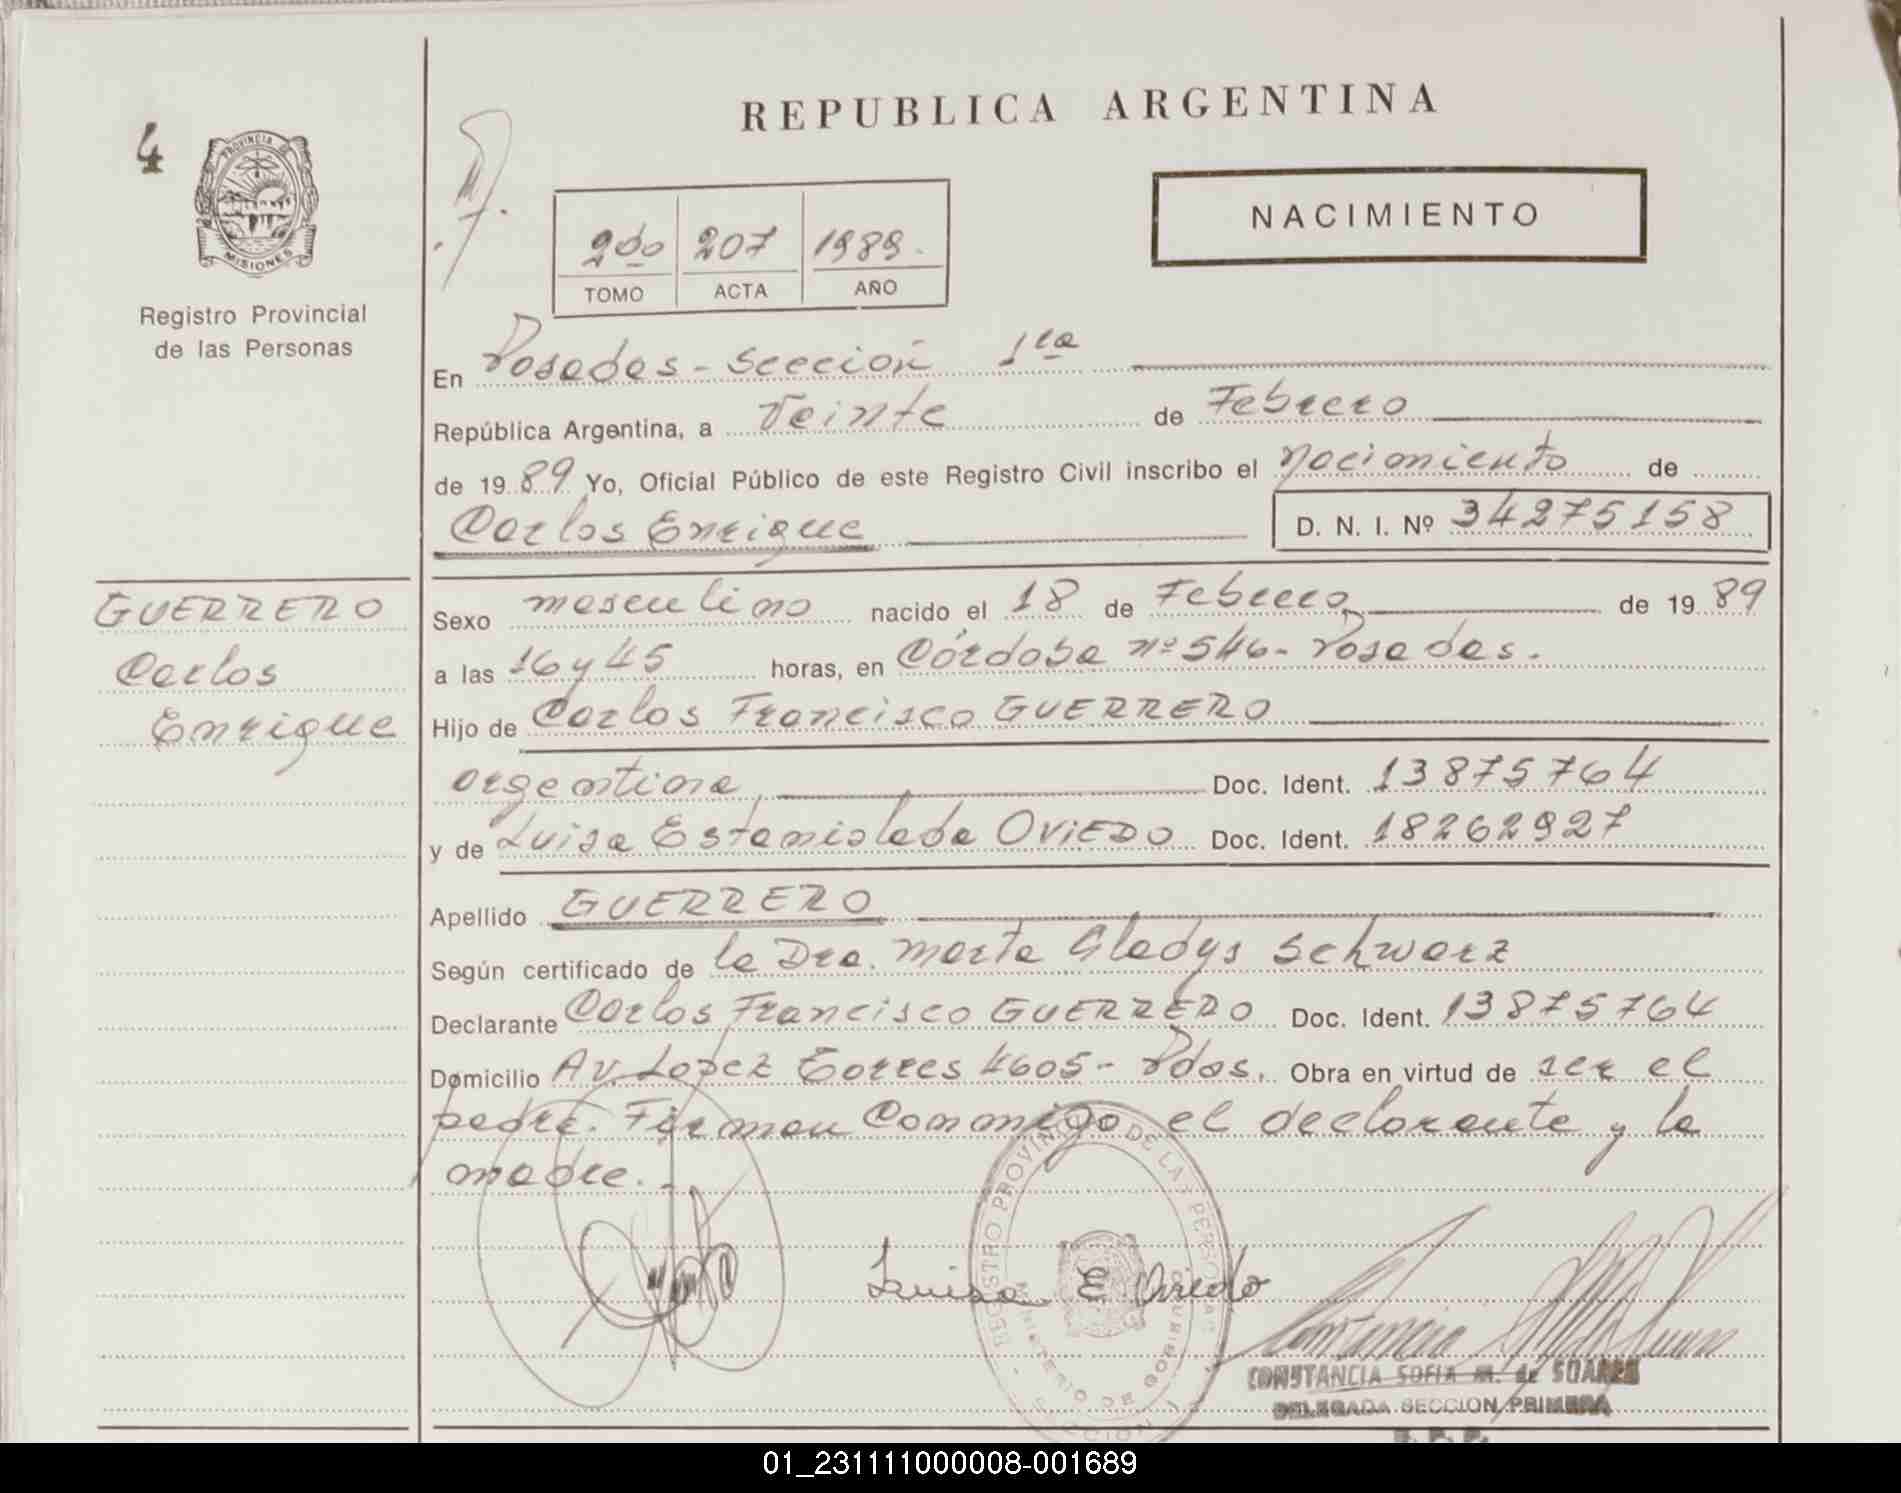 4
PROVINCIA DE
MISIONES
Registro Provincial
de las Personas
REPUBLICA ARGENTINA
NACIMIENTO
207 1989.
TOMO ACTA AÑO
En Posadas - Sección 1ra
República Argentina, a Veinte de Febrero
de 1989 Yo, Oficial Público de este Registro Civil inscribo el Nacimiento de
Carlos Enrique D. N. I. Nº 34275158
GUERRERO
Carlos
Enrique
Sexo masculino nacido el 18 de Febrero de 1989
a las 16 y 45 horas, en Córdoba nº 546 - Posadas.
Hijo de Carlos Francisco GUERRERO
argentina Doc. Ident. 13875764
y de Luisa Estanislada OVIEDO Doc. Ident. 18262927
Apellido GUERRERO
Según certificado de la Dra. Marta Gladys Schwarz
Declarante Carlos Francisco GUERRERO Doc. Ident. 13875764
Domicilio Av. Lopez Torres 4605 - Pdas. Obra en virtud de ser el
padre. Firman Conmigo el declarante y la
madre.-
REGISTRO PROVINCIAL DE LAS PERSONAS
MINISTERIO DE GOBIERNO
SECCION 1
Luisa E. Oviedo
CONSTANCIA SOFIA M. de SOARES
DELEGADA SECCION PRIMERA
01_231111000008-001689